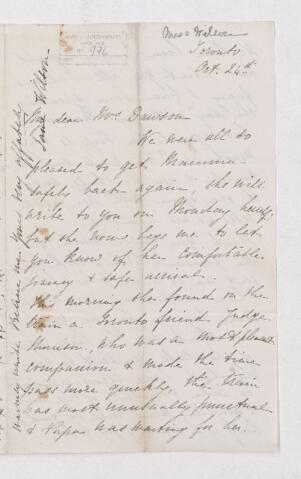 Miss Wilson
Toronto
Oct. 24th
My dear Mrs Dawson
We were all so
pleased to get Mamma
safely back again, she will
write to you on Monday herself
but she now begs me to let
you know of her comfortable
journey & safe arrival.
This morning she found on the
train a Toronto friend Judge
Morrison, who was a most pleasant
companion & made the time
pass more quickly, the train
was most unusually punctual
& Papa was waiting for her.
Believe me yours very affectely
Wilson